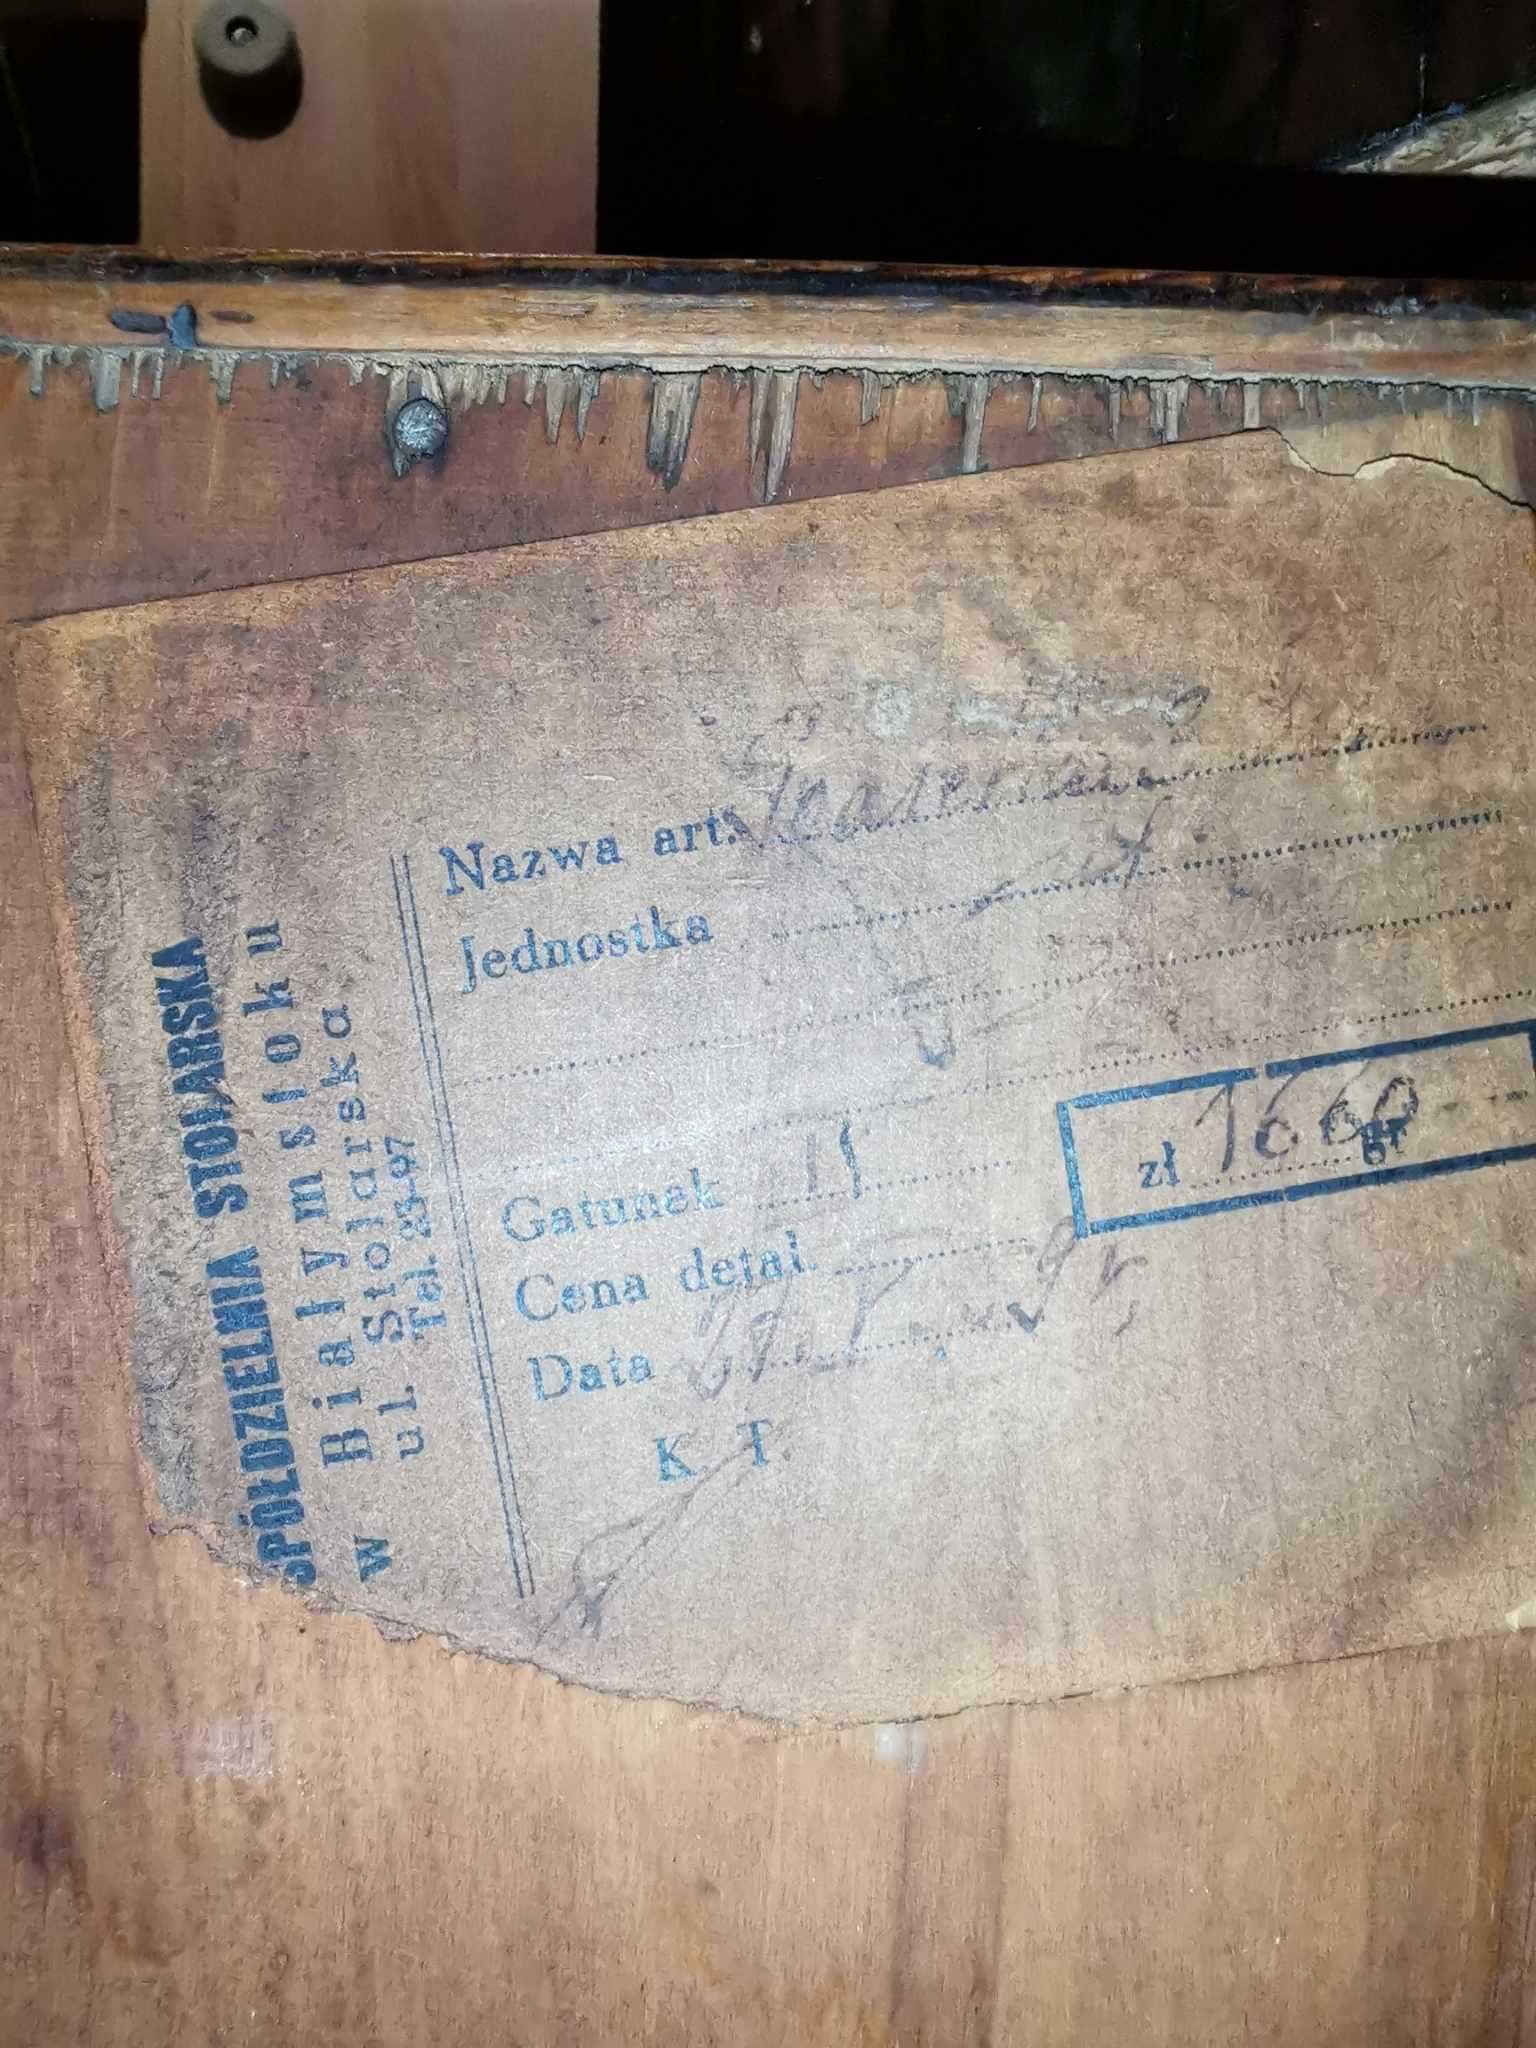 SPÓŁDZIELNIA STOLARSKA
w Białymstoku
ul Stolarska
Tel. 25-97
Nazwa art.
Jednostka szt.
Gatunek II
zł 1660 gr
Cena detal.
Data
K. T.